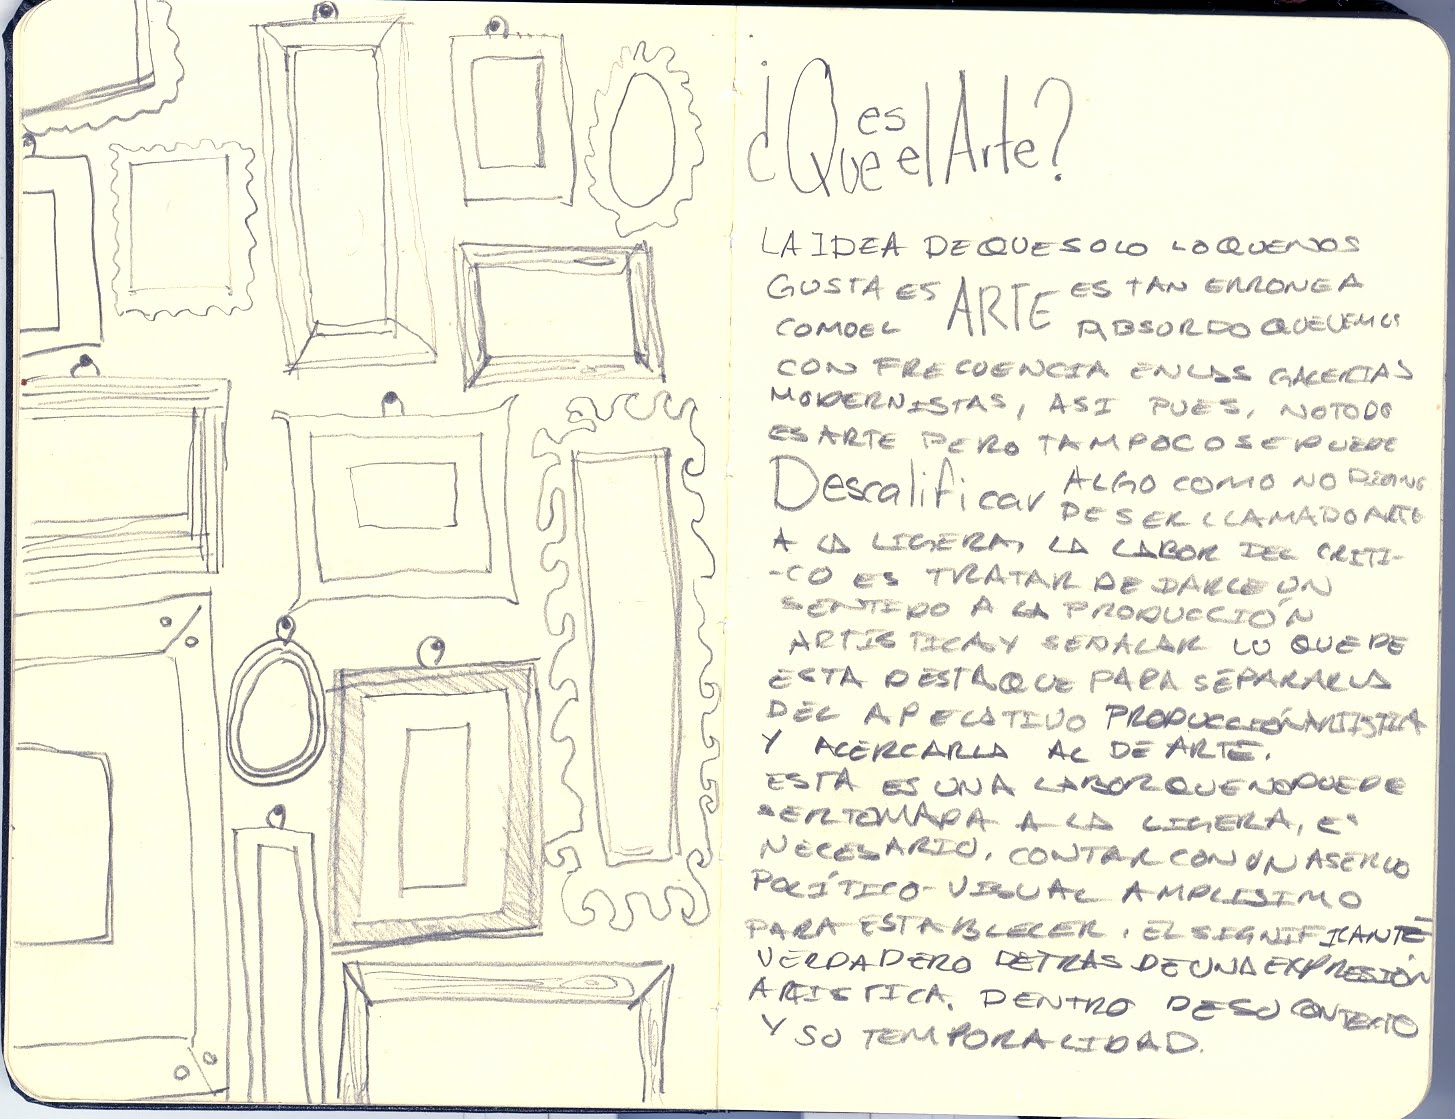 ¿Que es el Arte?
LA IDEA DE QUE SOLO LO QUE NOS
GUSTA ES ARTE ES TAN ERRONEA
COMO EL ABSURDO QUE VEMOS
CON FRECUENCIA EN LAS GALERIAS
MODERNISTAS, ASI PUES, NO TODO
ES ARTE PERO TAMPOCO SE PUEDE
Descalificar ALGO COMO NO DIGNO
DE SER LLAMADO ARTE
A LA LIGERA, LA LABOR DEL CRITI-
-CO ES TRATAR DE DARLE UN
SENTIDO A LA PRODUCCIÓN
ARTISTICA Y SEÑALAR LO QUE DE
ESTA DESTAQUE PARA SEPARARLA
DEL APELATIVO PRODUCCIÓN ARTISTICA
Y ACERCARLA AL DE ARTE.
ESTA ES UNA LABOR QUE NO PUEDE
SER TOMADA A LA LIGERA, ES
NECESARIO, CONTAR CON UN ASERVO
POLÍTICO-VISUAL AMPLISIMO
PARA ESTABLECER, EL SIGNIFICANTE
VERDADERO DETRÁS DE UNA EXPRESIÓN
ARTISTICA, DENTRO DE SU CONTEXTO
Y SU TEMPORALIDAD.